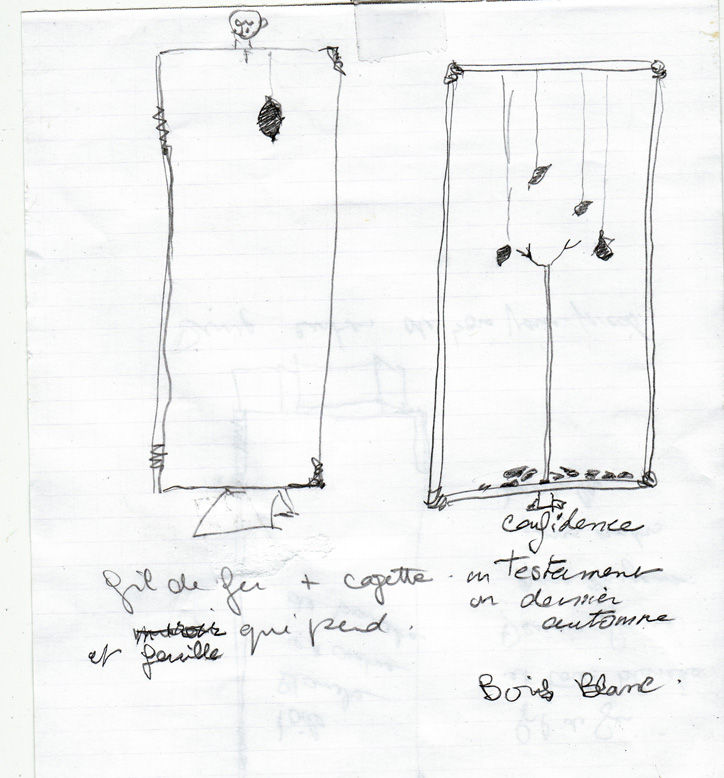 fil de fer + cagette.
et feuille qui pend.
confidence
ou Testament
ou dernier
automne
Bois Blanc.